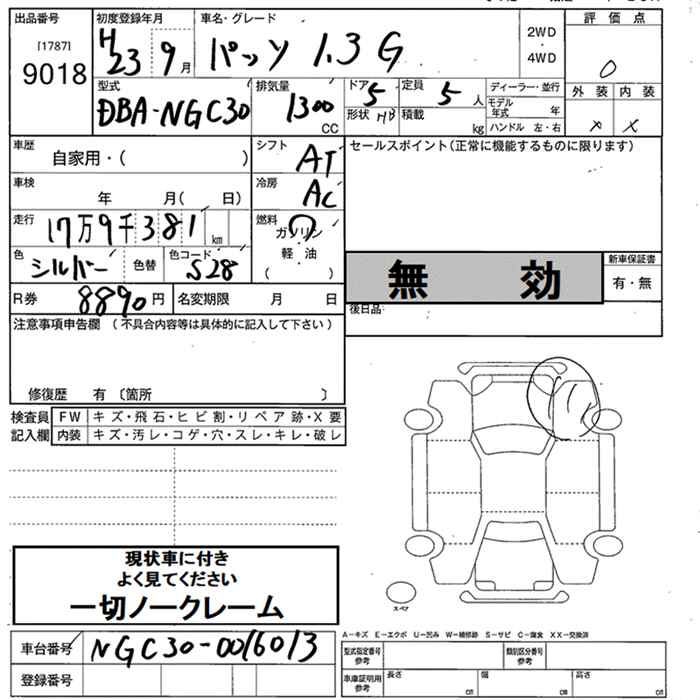 出品番号 初度登録年月 車名・グレード 2WD 評価点
[1787] H23 9月 パッソ 1.3 G ・
9018 4WD 0
型式 排気量 ドア 定員 ディーラー・並行 外装 内装
DBA-NGC30 1300 5 5 人 モデル年式 年
CC 形状 HB 積載 kg ハンドル 左・右 X X
車歴 自家用・( ) シフト AT セールスポイント(正常に機能するものに限ります)
車検 年 月( 日) 冷房 AC
走行 17万9千381 km 燃料 ガソリン
色 シルバー 色替 色コード S28 軽油 新車保証書
( ) 無効 有・無
R券 8890円 名変期限 月 日 後日品:
注意事項申告欄 (不具合内容等は具体的に記入して下さい)
修復歴 有 〔箇所 〕
検査員 FW キズ・飛石・ヒビ割・リペア跡・X要
記入欄 内装 キズ・汚レ・コゲ・穴・スレ・キレ・破レ
現状車に付き
よく見てください
一切ノークレーム
スペア
A-キズ E-エクボ U-凹み W-補修跡 S-サビ C-腐食 XX-交換済
車台番号 NGC30-0016013 型式指定番号 参考 類別区分番号 参考
登録番号 車庫証明用 参考 長さ cm 幅 cm 高さ cm